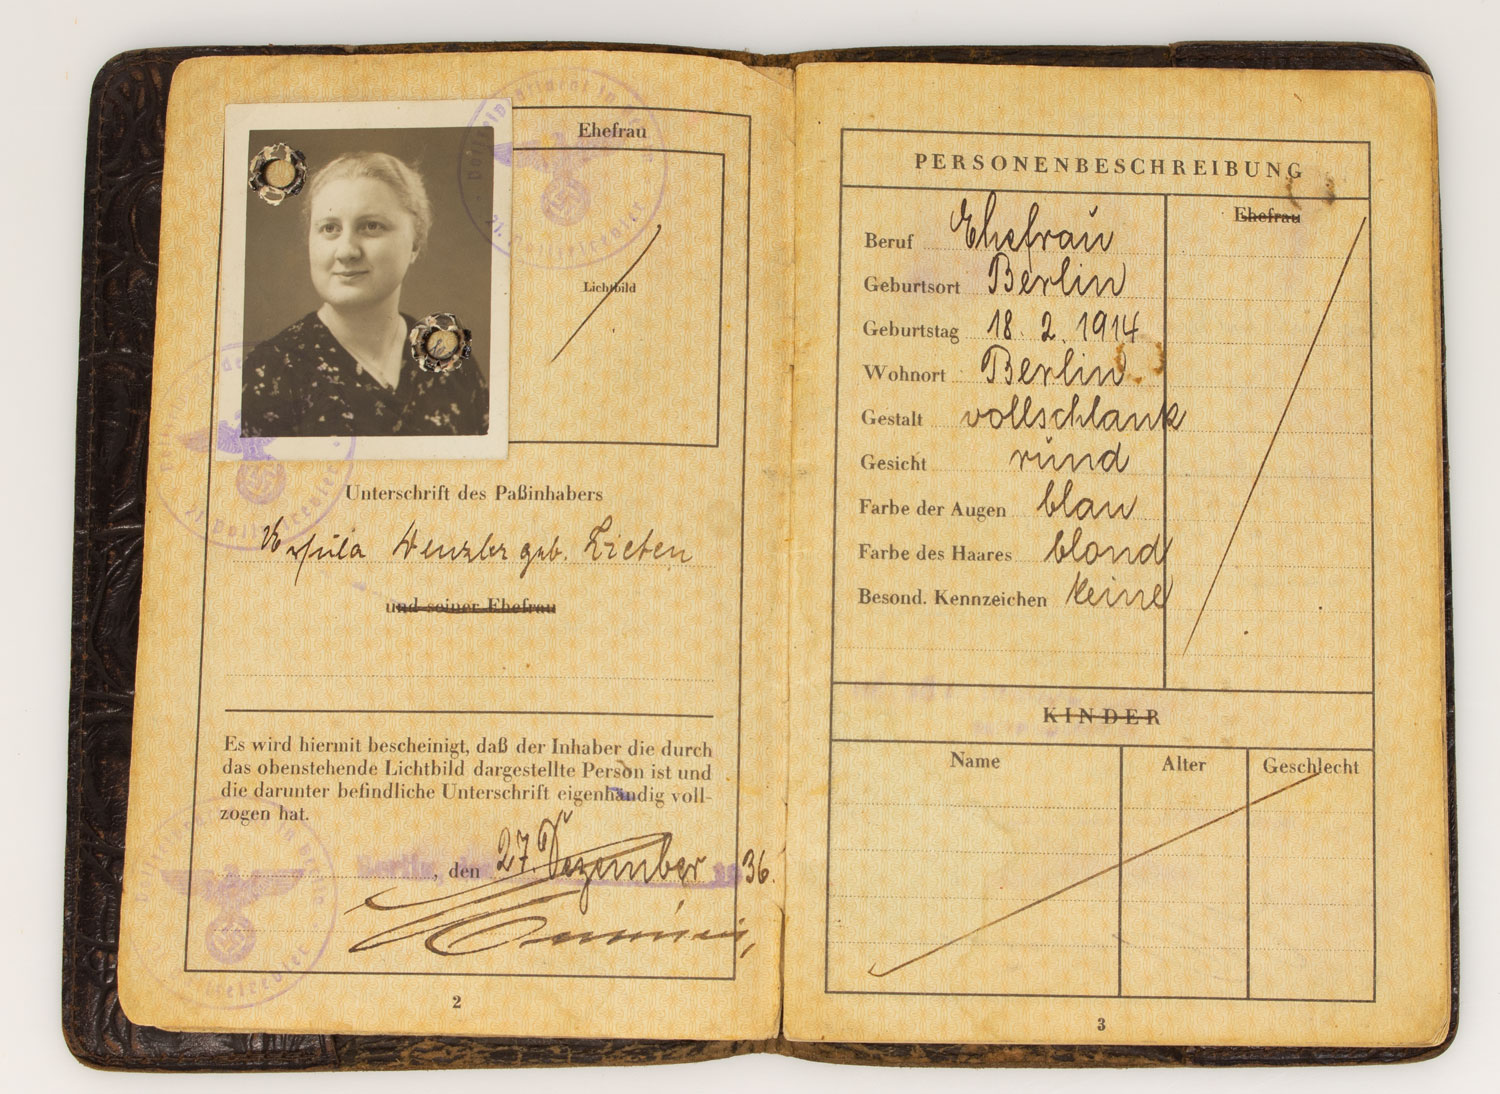 Ehefrau
Lichtbild
Unterschrift des Paßinhabers
Ursula Wenzler geb. Zieten
und seiner Ehefrau
Es wird hiermit bescheinigt, daß der Inhaber die durch
das obenstehende Lichtbild dargestellte Person ist und
die darunter befindliche Unterschrift eigenhändig voll-
zogen hat.
Berlin, den 27. Dezember 1936.
2
PERSONENBESCHREIBUNG
Ehefrau
Beruf Ehefrau
Geburtsort Berlin
Geburtstag 18. 2. 1914
Wohnort Berlin
Gestalt vollschlank
Gesicht rund
Farbe der Augen blau
Farbe des Haares blond
Besond. Kennzeichen keine
KINDER
Name Alter Geschlecht
3